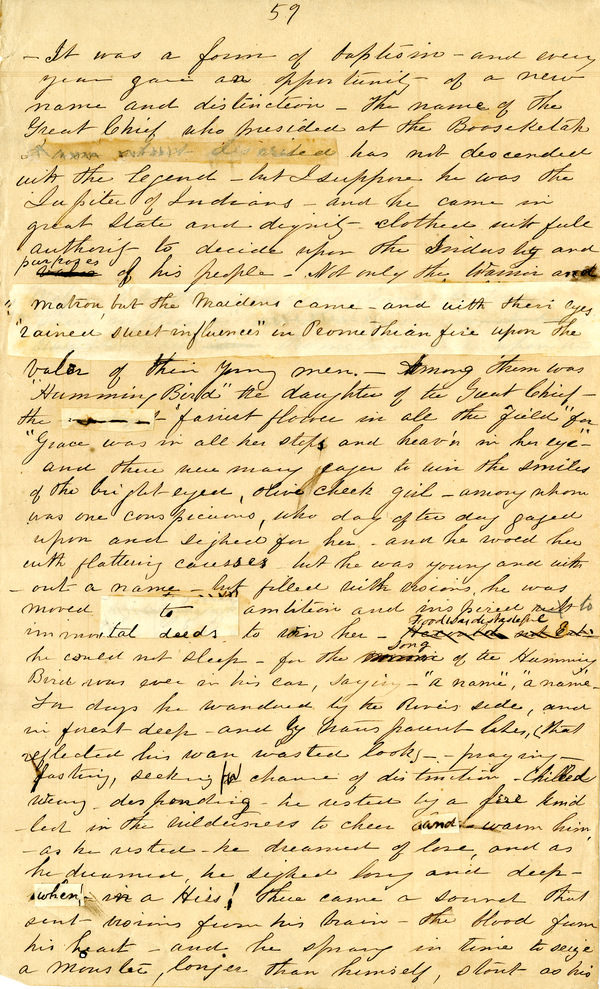 59
- It was a form of baptism - and every
year gave an opportunity - of a new
name and distinction - The name of the
Great Chief who presided at the Boosketah
has not descended
with the legend - but I suppose he was the
Jupiter of Indians - and he came in
great State and dignity - clothed with full
authority to decide upon the and
purposes
of his people - Not only the Warrior and
matron, but the Maidens came - and with their eyes
"rained sweet influences" in Promethian fire upon the
valor of their young men. - Among them was
"Humming Bird" the daughter of the Great Chief -
the - "fairest flower in all the field" for
"Grace was in all her steps and heav'n in her eye" -
and there were many eager to win the smiles
of the bright eyed, olive cheek girl - among whom
was one conspicuous, who day after day gazed
upon and sighed for her - and he wooed her
with flattering - but he was young and with
- out a name - but filled with visions, he was
moved to ambition and inspired to
immortal deeds to win her - Food was distasteful
Song
he could not sleep - for the of the Humming
Bird was ever in his ear, saying - "a name", "a name" -
For days he wandered by the Rivers side, and
in forest deep - and by transparent lakes, (that
reflected his wan wasted look) - - praying -
fasting, seeking for chance of distinction - Chilled
weary - desponding - he rested by a fire kind
- led in the wilderness to cheer and - warm him
- as he rested - he dreamed of love, and as
he dreamed, he sighed long and deep -
when! - a Hiss! there came a sound that
sent visions from his brain - the blood from
his heart - and he sprang in time to seize
a monster, longer than himself, stout as his